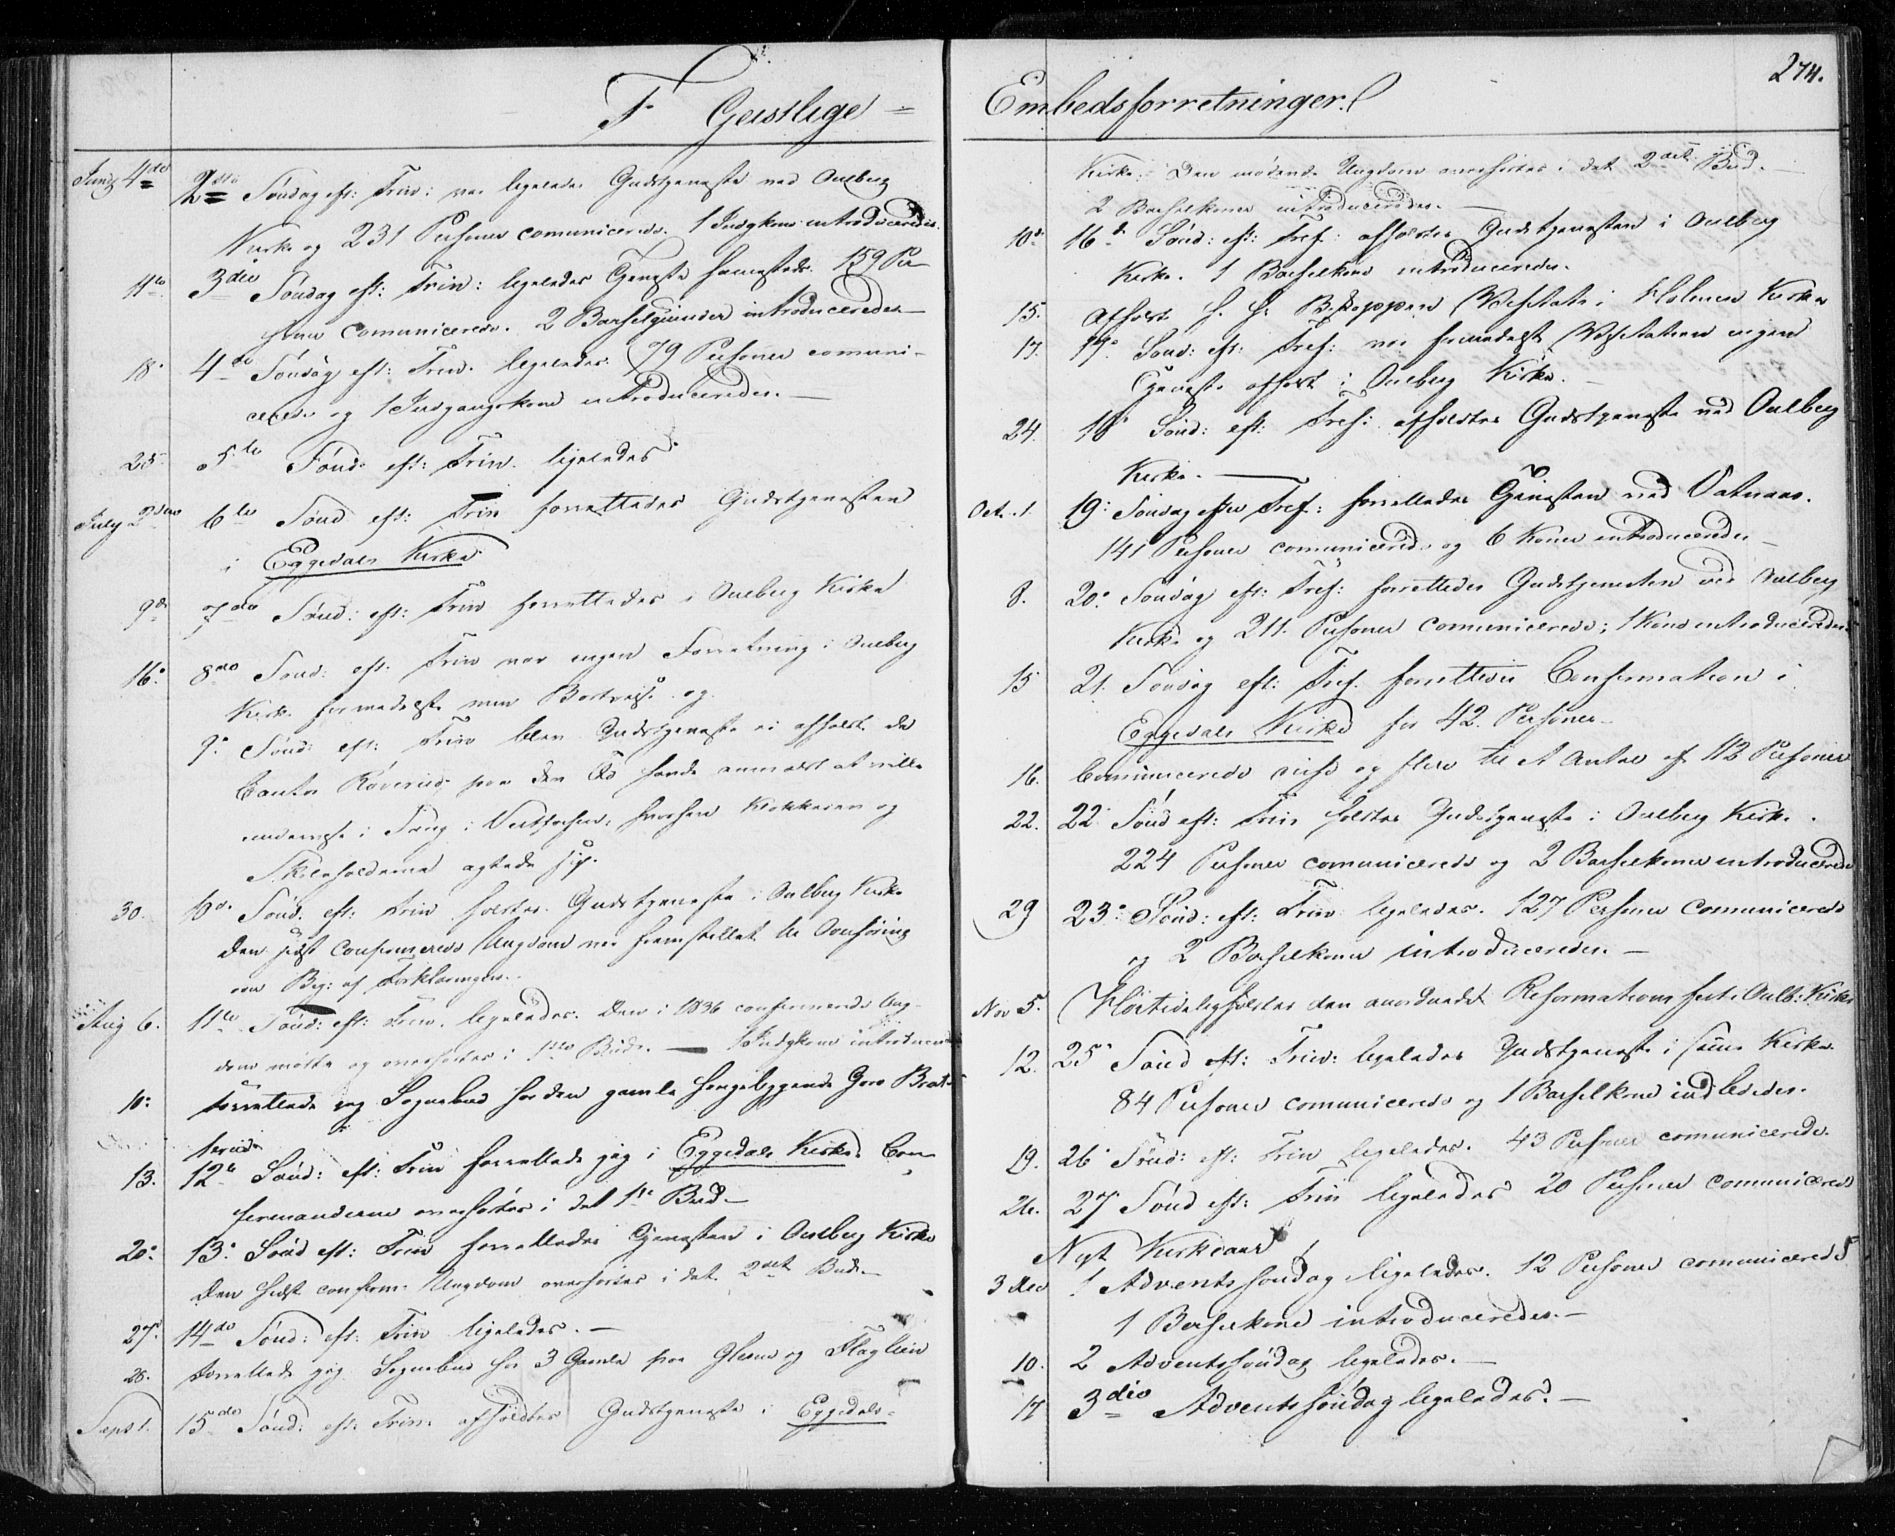 F Geistlige =
Juny 4de 2den Søndag eft: Trin: var ligeledes Gudstjeneste ved Oulberg
Kirke og 231 Personer comunicerede. 1 Indgkone introduceredes.
11te 3die Søndag eft: Trin: ligeledes Tjeneste sammesteds. 159 Per-
soner comunicerede. 2 Barselqvinder introduceredes
18. 4de Søndag eft: Trin. ligeledes. 79 Personer comuni-
cerede og 1 Indgangskone introduceredes.
25. 5te Sønd: eft: Trin. ligeledes
July 2den 6te Sønd eft: Trin forrettedes Gudstjenesten
i Eggedals Kirke
9de 7de Sønd: eft: Trin forrettedes i Oulberg Kirke
16. 8de Sønd: eft: Trin var ingen Forretning i Oulberg
Kirke formedelst min Bortreise og
9. Sønd: eft: Trin blev Gudstjeneste ei afholdt da
Cantor paa den Tid havde anmeldt at ville
undervise i Sang i hvorhen Klokkeren og
Skoleholderne agtede sig.
30. 10de Sønd. eft: Trin holdtes Gudstjeneste i Oulberg Kirke
Den sidst confirmerede Ungdom var fremstillet til Overhøring
over Beg: af Forklaringen.
Aug 6. 11te Sønd: eft: Trin. ligeledes. Den i 1836 confirmerede Ung-
dom mødte og overhørtes i 1ste Bud. — 1 Indgkone introduceredes
10. forrettede jeg Sognebud hos den gamle sengeliggende Goro Brat-
terud
13. 12te Sønd: eft: Trin forrettede jeg i Eggedals Kirke. Con-
firmanderne overhørtes i det 1te Bud.
20. 13. Sønd eft: Trin forrettedes Tjenesten i Oulberg Kirke
Den sidst confirm: Ungdom overhørtes i det 2det Bud.
27. 14de Sønd: eft: Trin ligeledes.
28. forrettede jeg Sognebud hos 3 Gamle paa Glesne og
Sept 15de Sønd: eft: Trin: afholdtes Gudstjeneste i Eggedals-
274.
Embedsforretninger.
Kirke. Den mødende Ungdom overhørtes i det 2det Bud.
2 Barselkoner introduceredes.
10de 16de Sønd: eft: Tref: afholdtes Gudstjenesten i Oulberg
Kirke. 1 Barselkone introduceredes.
15. afholdt H. H. Biskoppen Visitats i Holmens Kirke
17. 17. Sønd: eft: Tref: var formedelst Visitatsen ingen
Tjeneste afholdt i Oulberg Kirke.
24. 18 Sønd: eft: Tref: afholdtes Gudstjeneste ved Oulberg
Kirke.
Oct. 1 19: Søndag efter Tref: forrettedes Tjenesten ved Vatnaas.
141 Personer comunicerede og 6 Koner introduceredes
8. 20. Søndag eft: Tref: forrettedes Gudstjenesten ved Oulberg
Kirke og 211. Personer comunicerede; 1 Kone introduceredes
15 21. Søndag eft: Tref. forrettedes Confirmation i
Eggedals Kirke for 42 Personer
16. Comunicerede disse og flere til et Antal af 112 Personer
22. 22. Sønd eft: Trin holdtes Gudstjeneste i Oulberg Kirke.
224 Personer comunicerede og 2 Barselkoner introducerede
29 23: Sønd: eft: Trin ligeledes. 127 Personer comunicerede
og 2 Barselkoner introduceredes.
Nov 5. Høitideligholdtes den anordnede Reformations fest i Oulb: Kirke
12. 25 Sønd eft: Trin: ligeledes Gudstjeneste i samme Kirke.
84 Personer comunicerede og 1 Barselkone indlededes.
19. 26 Sønd: eft: Trin ligeledes. 43 Personer comunicerede.
26. 27 Sønd eft: Trin ligeledes 20 Personer comunicerede
Nyt Kirkeaar!
3 dec 1 Advents søndag ligeledes. 12 Personer comunicerede
1 Barselkone introduceredes.
10. 2 Adventssøndag ligeledes.
17 3die Adventssøndag ligeledes.